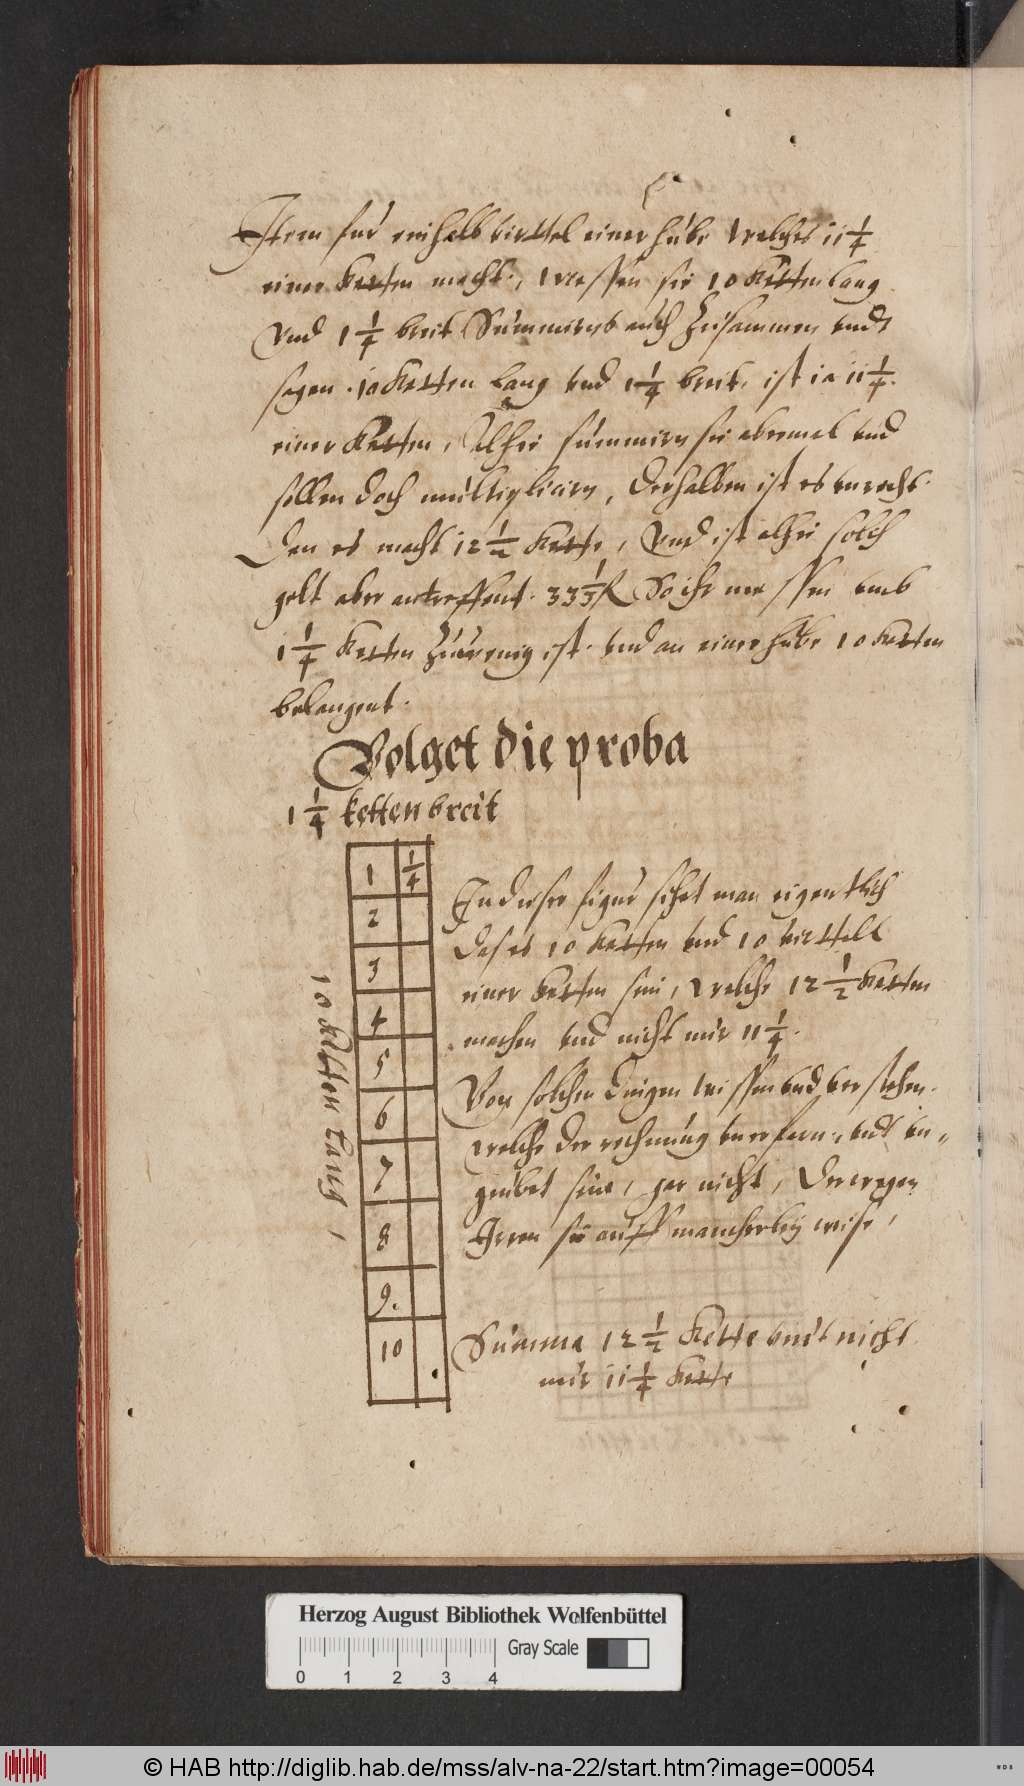 Item fur ein halb virttel einer hube welches 11 1/4
einer ketten macht, messen sie 10 Ketten lang
Vnd 1 1/4 breit Summirns auch Zusammen vndt
sagen 10 Ketten lang vnd 1 1/4 breit, ist ia 11 1/4
einer Ketten, Alhie summirn sie abermal vnd
sollen doch multiplicirn, Derhalben ist es vnrecht
Den es macht 12 1/2 Kette, Vnd ist alhie solch
gelt aber antreffent 33 1/3 fl So ihr messen vmb
1 1/4 Ketten Zuwenig ist vnd an einer hube 10 Ketten
belangent.
Volget die proba
1 1/4 ketten breit
1 1/4
2
3
4
5
6
7
8
9.
10
10 Ketten lang,
In dieser figur sihet man eigentlich
Das es 10 Ketten vnd 10 virttell
einer ketten sein, welche 12 1/2 Ketten
machen vnd nicht nur 11 1/4.
Von solchen Dingen wissen vnd verstehen
welche der rechnung vnerfarn, vndt vn„
geubet sein, gar nicht, Derwegen
Irren sie auff mancherley weise,
Summa 12 1/2 Kette vndt nicht
nur 11 1/4 Kette
Herzog August Bibliothek Wolfenbüttel
Gray Scale
0 1 2 3 4
© HAB http://diglib.hab.de/mss/alv-na-22/start.htm?image=00054